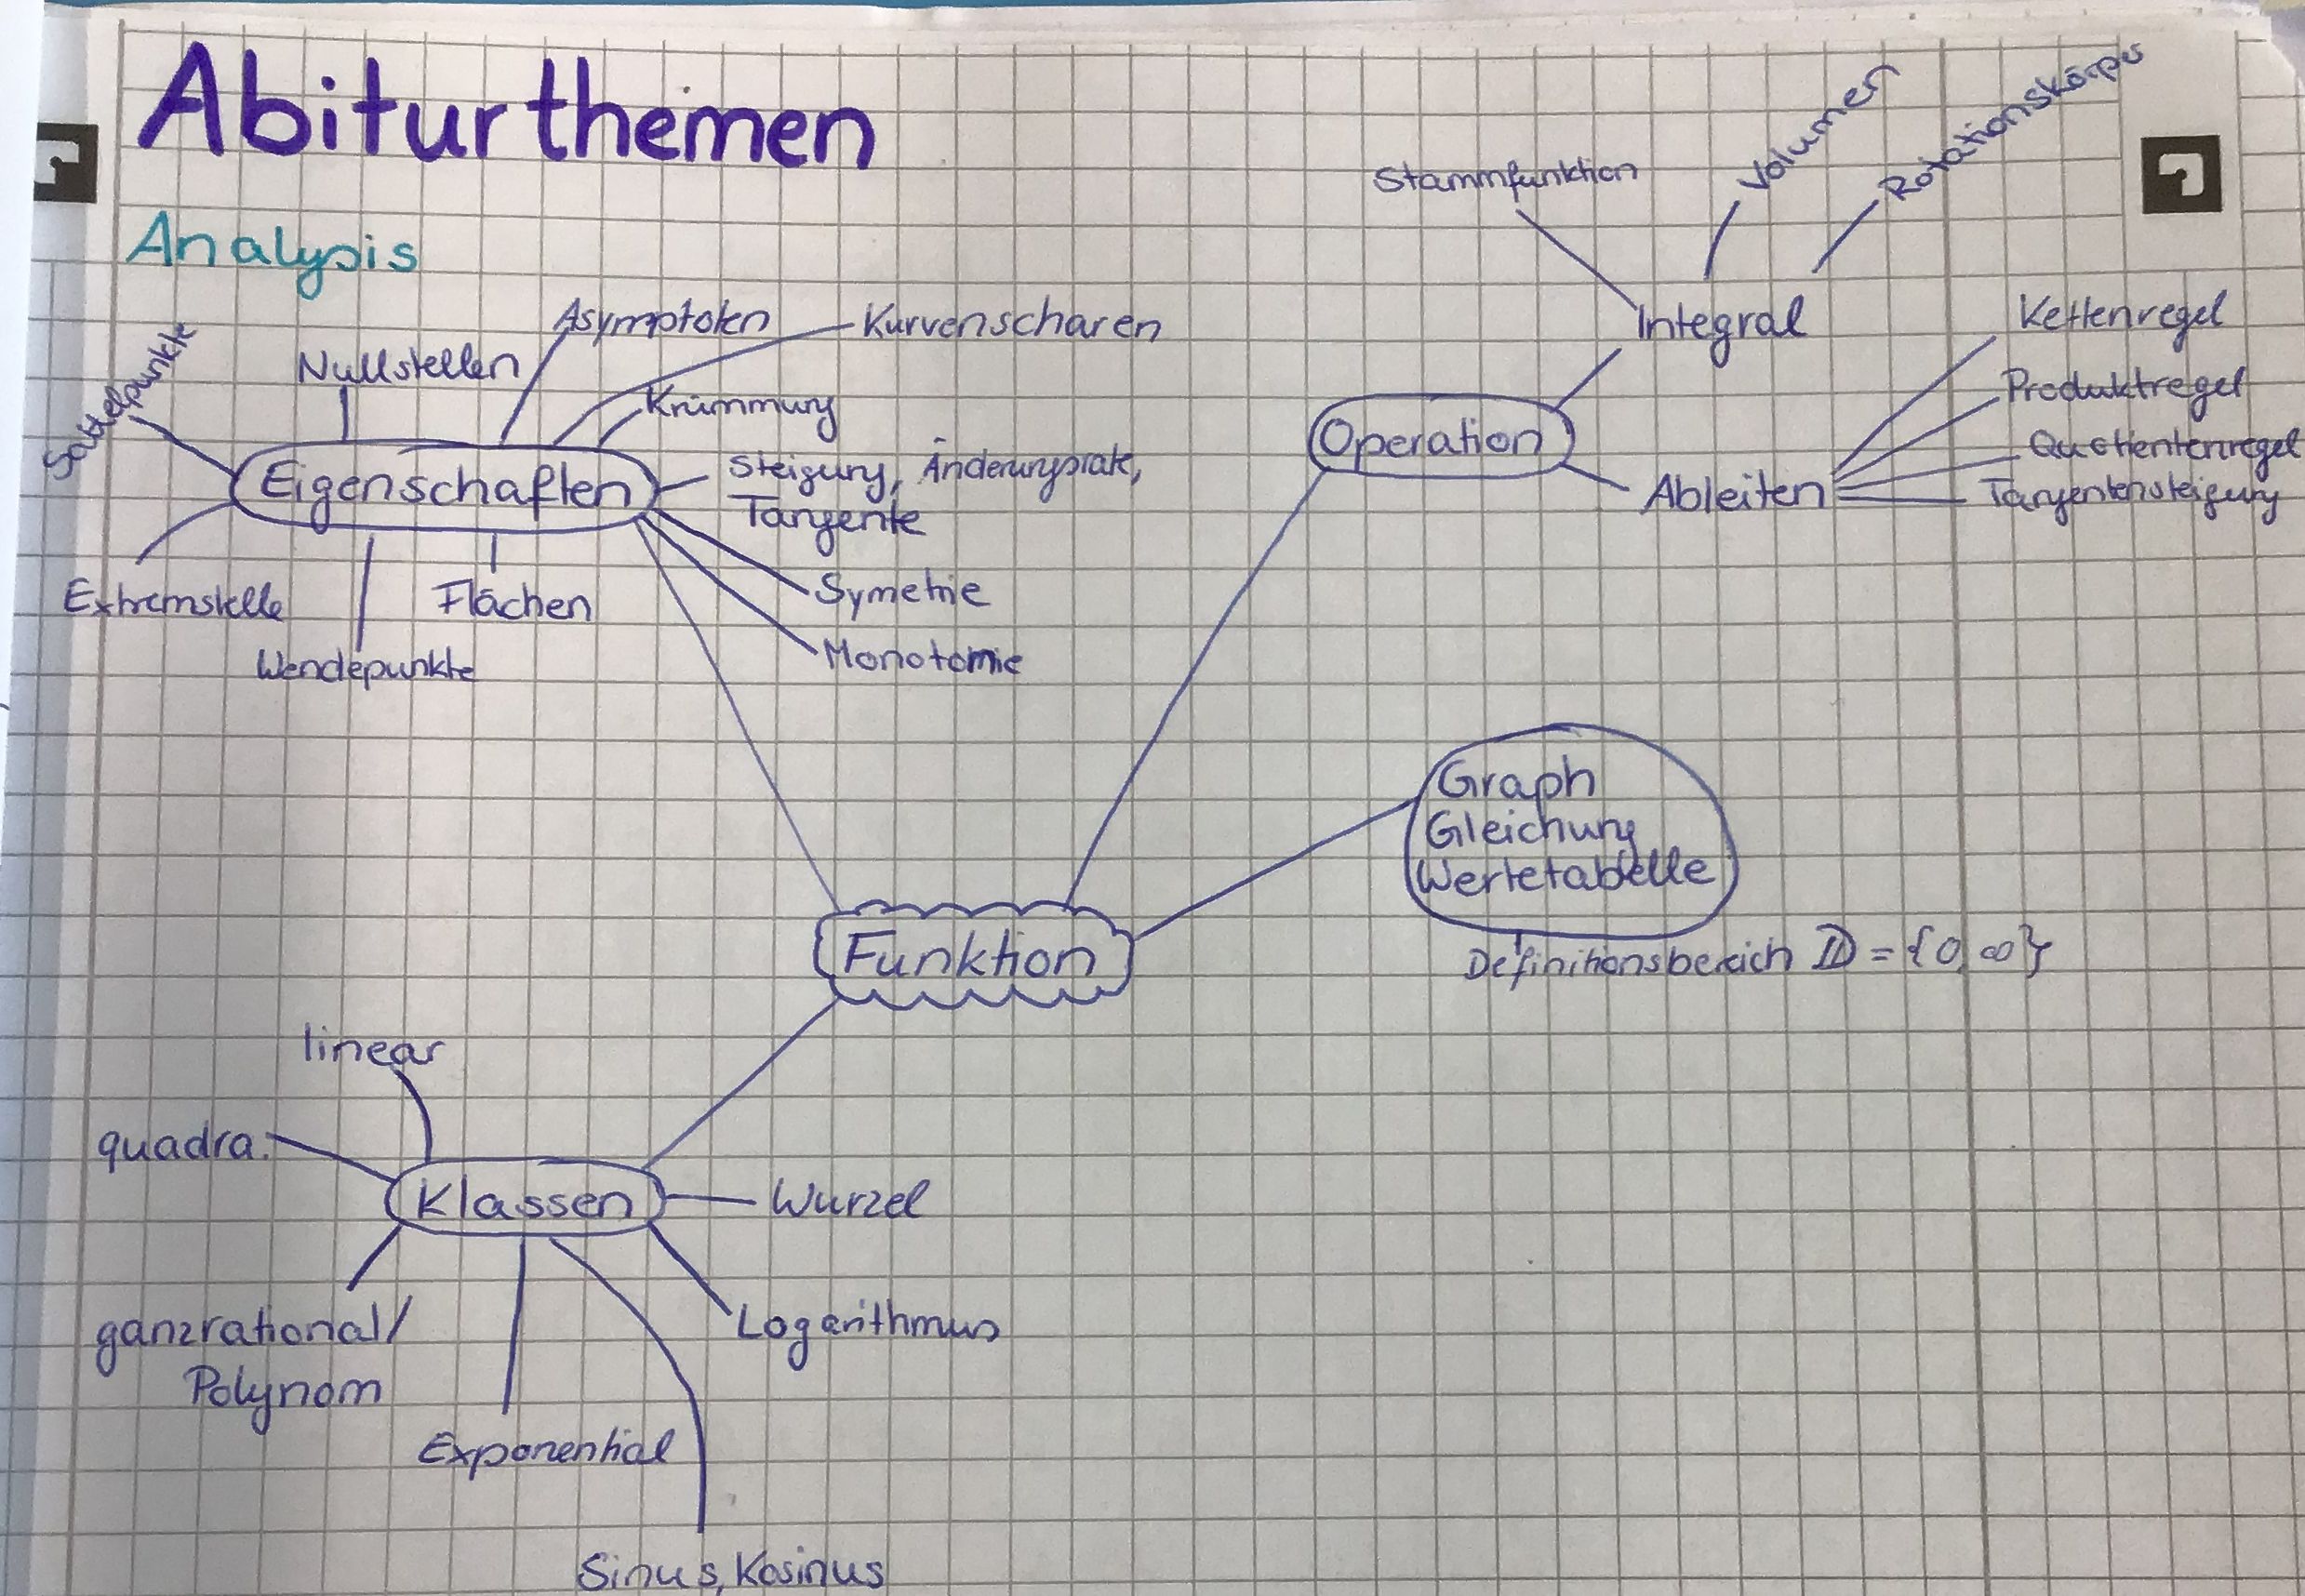 Abiturthemen
Analysis
Stammfunktion
Volumen
Rotationskörper
Integral
Kettenregel
Produktregel
Quotientenregel
Tangentensteigung
Ableiten
Operation
Sattelpunkte
Nullstellen
Asymptoten
Kurvenscharen
Krümmung
Eigenschaften
Steigung, Änderungsrate,
Tangente
Symetrie
Monotomie
Extremstelle
Wendepunkte
Flächen
Graph
Gleichung
Wertetabelle
Definitionsbereich 𝔻 = {0, ∞}
Funktion
linear
quadra.
Klassen
Wurzel
Logarithmus
ganzrational/
Polynom
Exponential
Sinus, Kosinus